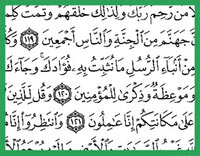 لا من رحم ربك ولذلك خلقهم وتمت كلمة
جهنم من الجنة والناس أجمعين ١١٩
من أنباء الرسل ما نثبت به فؤادك وجاءك
وموعظة وذكرى للمؤمنين ١٢٠ وقل للذين
على مكانتكم إنا عاملون ١٢١ وانتظروا إنا